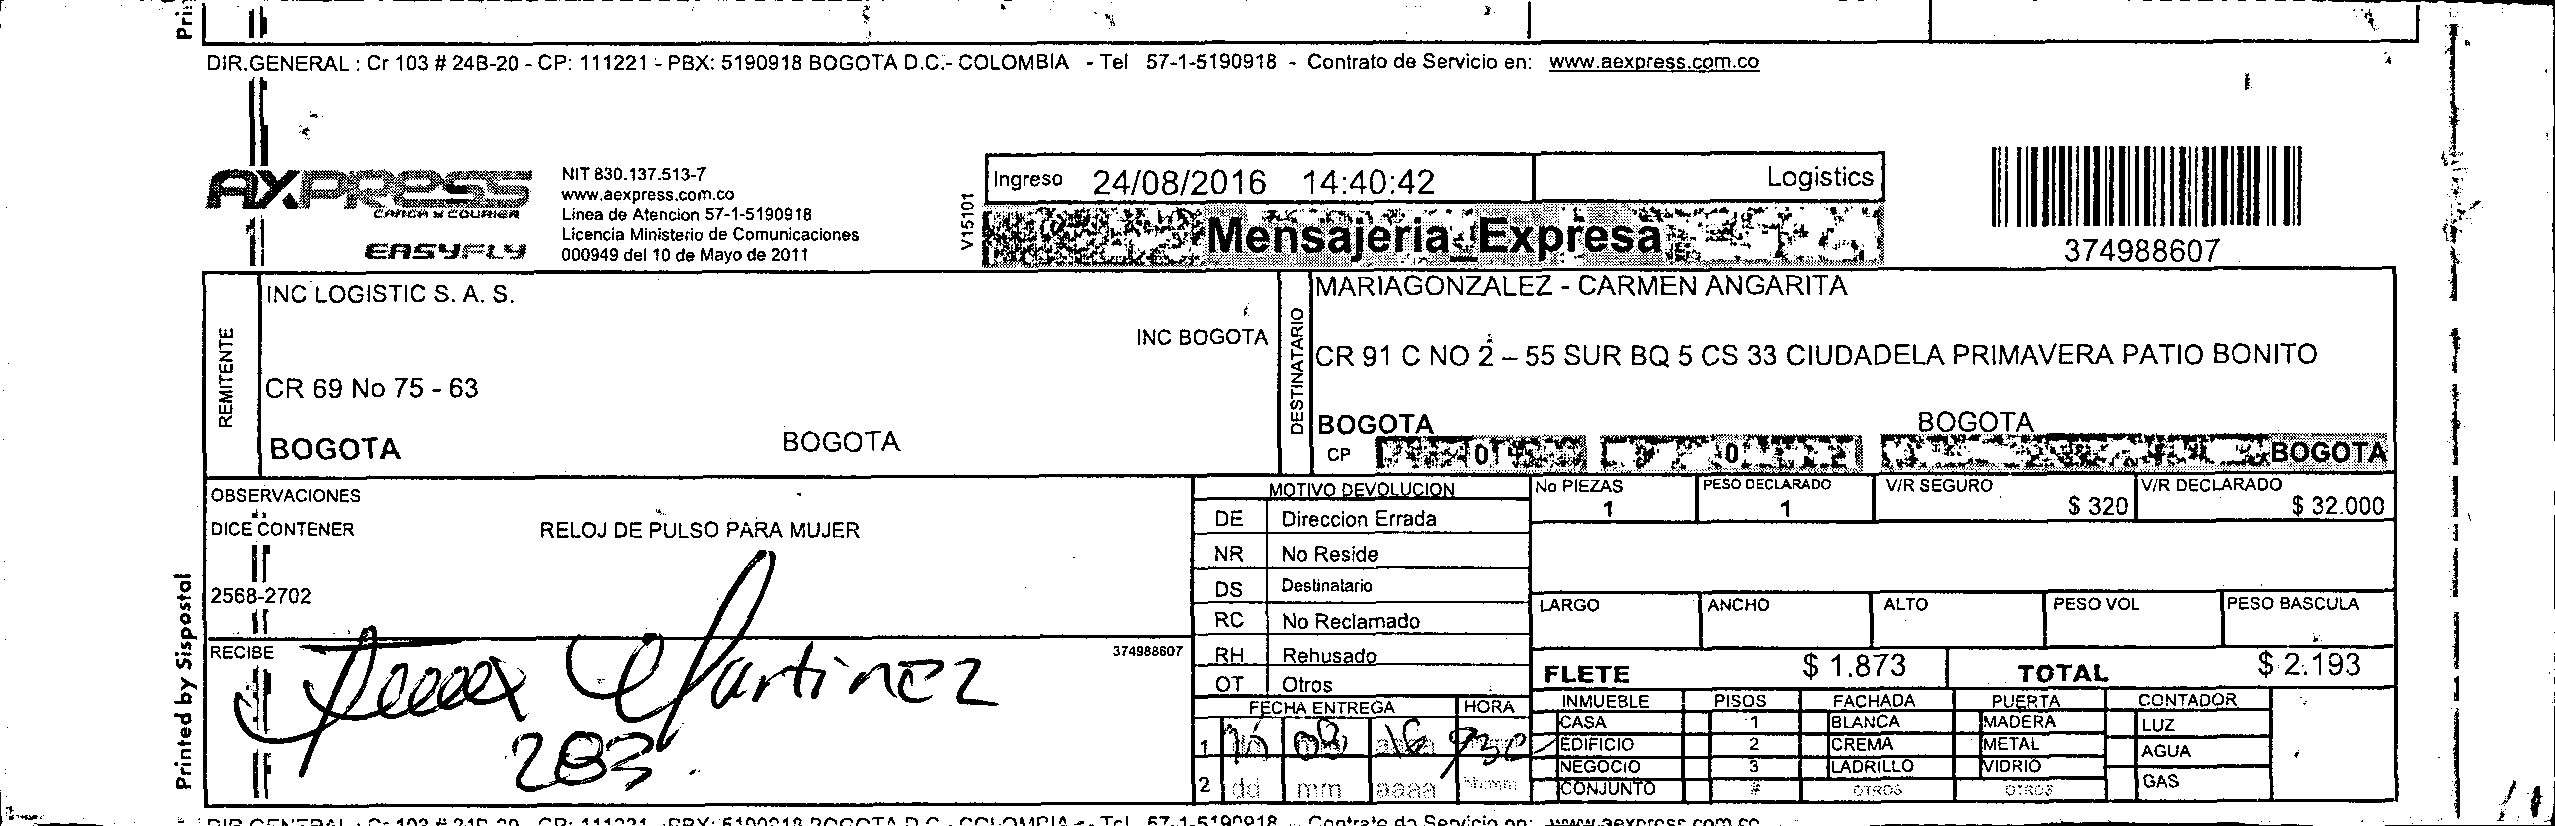 DIR.GENERAL : Cr 103 # 24B-20 - CP: 111221 - PBX: 5190918 BOGOTA D.C.- COLOMBIA - Tel 57-1-5190918 - Contrato de Servicio en: www.aexpress.com.co
AXPRESS
CARGA & COURIER
EASYFLY
NIT 830.137.513-7
www.aexpress.com.co
Linea de Atencion 57-1-5190918
Licencia Ministerio de Comunicaciones
000949 del 10 de Mayo de 2011
V15101
Ingreso 24/08/2016 14:40:42 Logistics
Mensajeria_Expresa
374988607
REMITENTE
INC LOGISTIC S. A. S.
INC BOGOTA
CR 69 No 75 - 63
BOGOTA BOGOTA
DESTINATARIO
MARIAGONZALEZ - CARMEN ANGARITA
CR 91 C NO 2 – 55 SUR BQ 5 CS 33 CIUDADELA PRIMAVERA PATIO BONITO
BOGOTA BOGOTA
CP 01 0 BOGOTA
OBSERVACIONES
DICE CONTENER RELOJ DE PULSO PARA MUJER
2568-2702
RECIBE 374988607
Martinez
283
Printed by Sispostal
MOTIVO DEVOLUCION
DE Direccion Errada
NR No Reside
DS Destinatario
RC No Reclamado
RH Rehusado
OT Otros
FECHA ENTREGA HORA
1 08 16 930
2 dd mm aaaa hhmm
No PIEZAS PESO DECLARADO V/R SEGURO V/R DECLARADO
1 1 $ 320 $ 32.000
LARGO ANCHO ALTO PESO VOL PESO BASCULA
FLETE $ 1.873 TOTAL $ 2.193
INMUEBLE PISOS FACHADA PUERTA CONTADOR
CASA 1 BLANCA MADERA LUZ
EDIFICIO 2 CREMA METAL AGUA
NEGOCIO 3 LADRILLO VIDRIO
CONJUNTO # OTROS OTROS GAS
DIR.GENERAL : Cr 103 # 24B-20 - CP: 111221 - PBX: 5190918 BOGOTA D.C.- COLOMBIA - Tel 57-1-5190918 - Contrato de Servicio en: www.aexpress.com.co